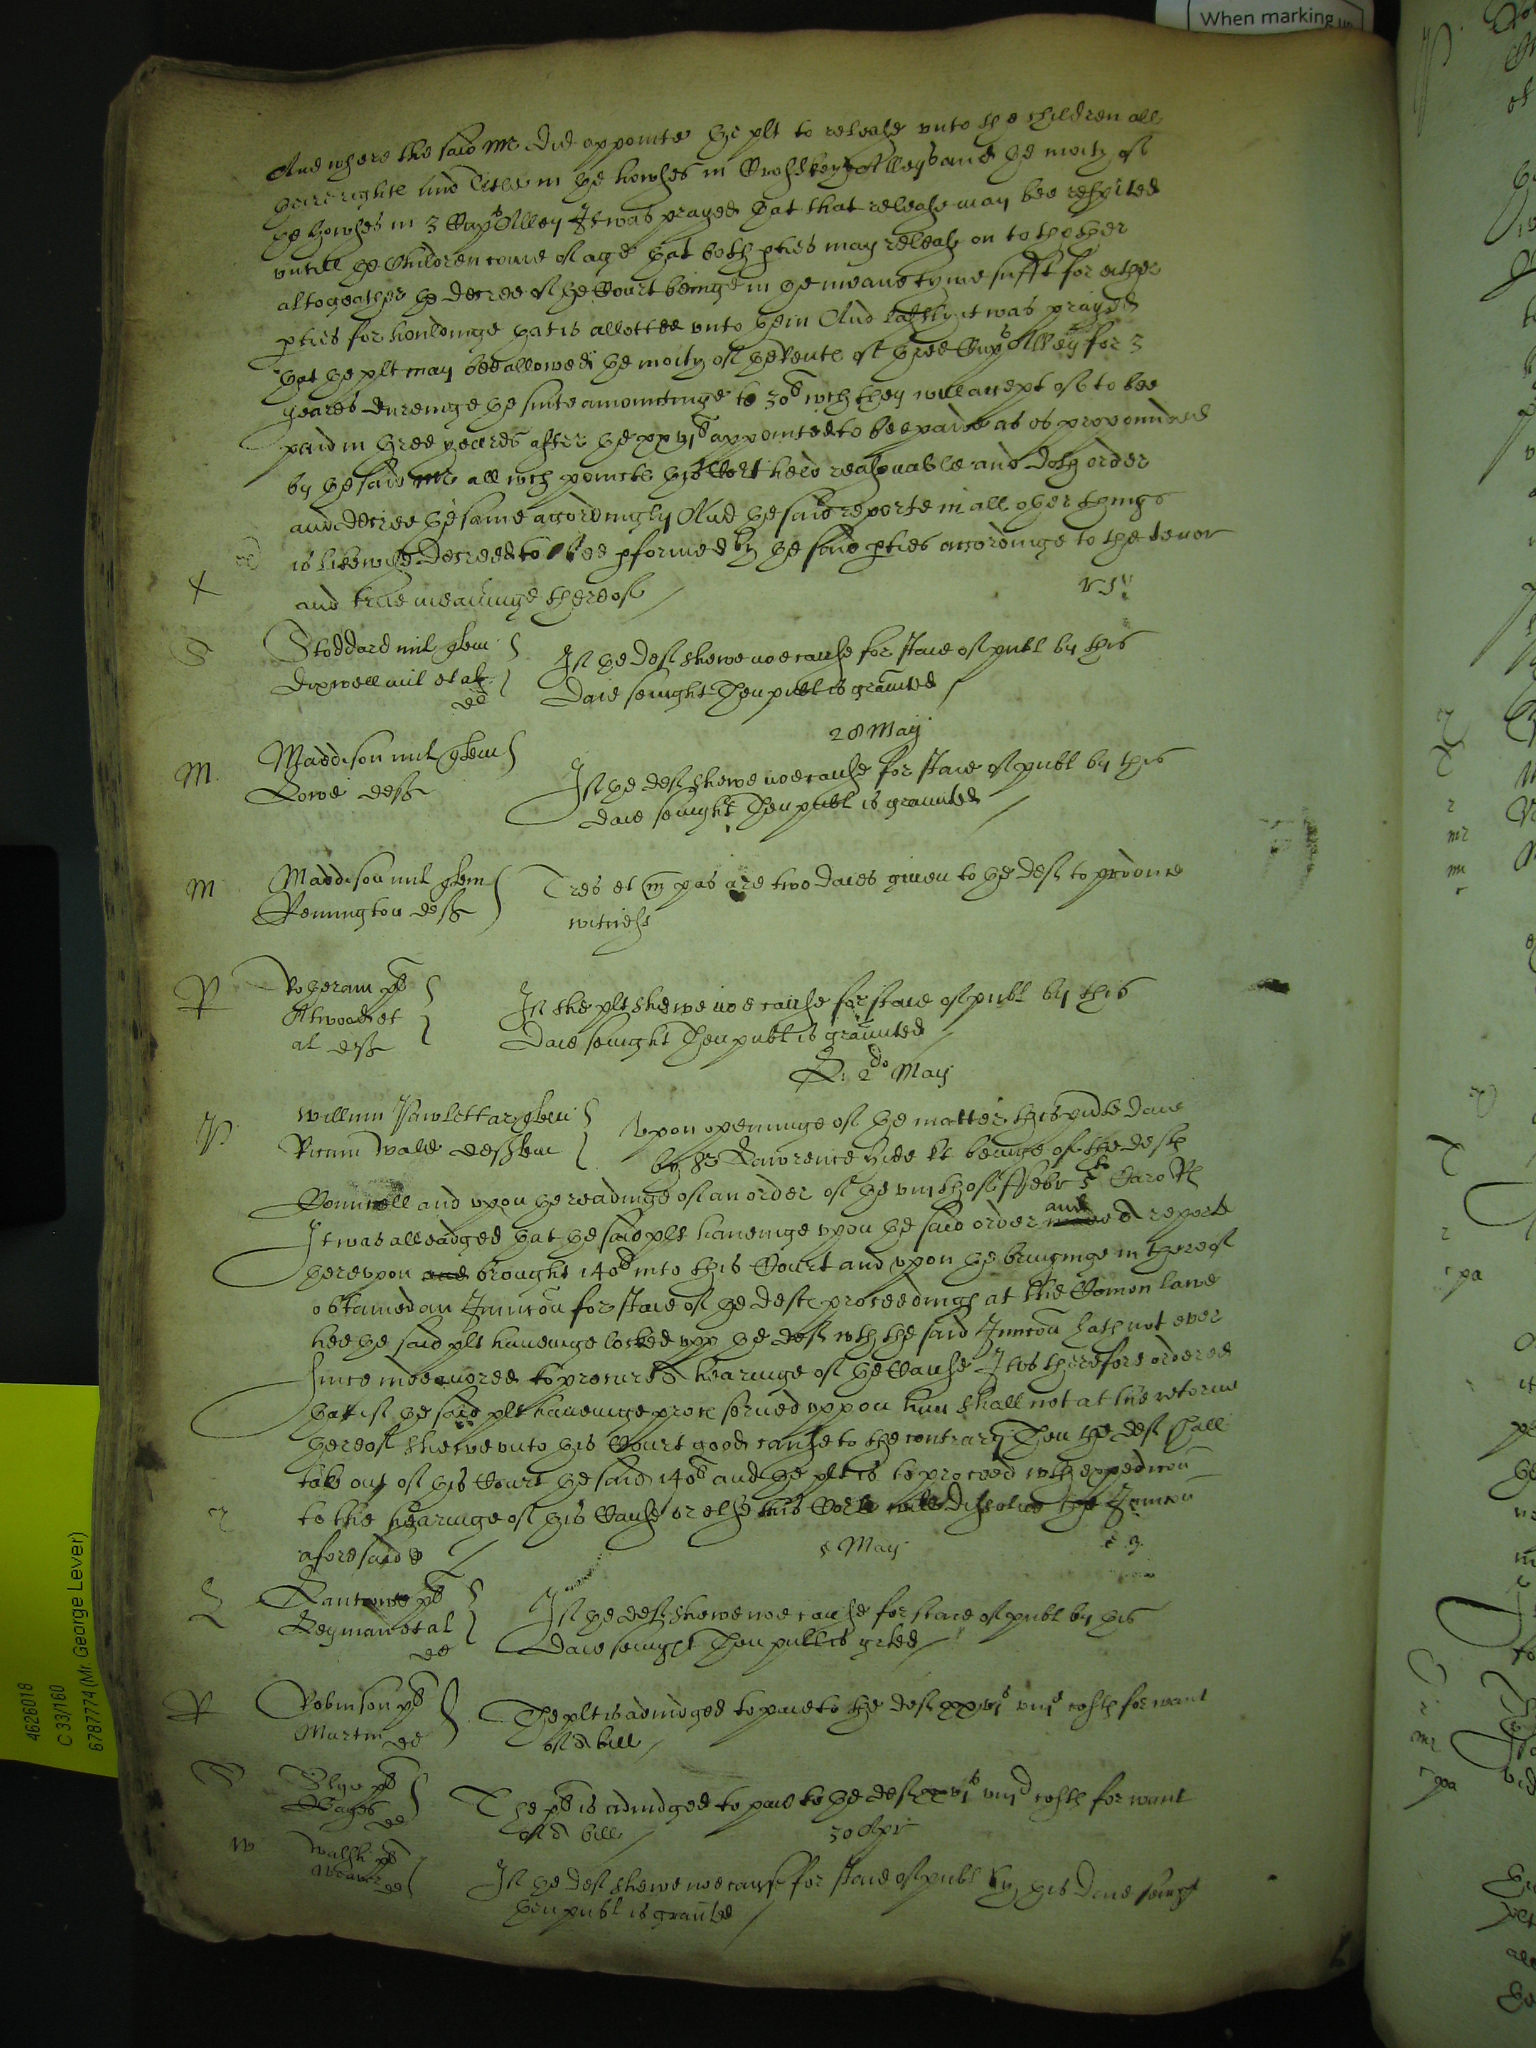 When marking up
And where the said Mr did appointe the plt to release unto the children all
there righte and Title in the howses in Alley and the moity of
the howses in 3 Cupps Alley It was prayed that that release may bee respited
untill the Children come of age that both pties may release on to thother
altogeather the decree of the Court beinge in the meane tyme sufft for either
pties for houldinge that is allotted unto them And lastly it was prayed
that the plt may bee allowed the moity of the rente of three Cupps Alley for 3
yeares dureinge the suite amountinge to 30l wch they will accept of to bee
paid in three yeares after the xxvjl appointed to bee paid as is propounded
by the said Mr all wch pointe this Court held reasonable and doth order
and decree the same accordingly And the said reporte in all other things
is likewise decreed to bee pformed by the said pties accordinge to the tenor
and true meaninge thereof
Stoddard mil quer
Dixwell mil et al
de
If the def shewe noe cause for staie of publ by this
daie sevnight Then publ is graunted
28 May
M
Maddison mil quer
Rowe deft
If the def shewe noe cause for staie of publ by this
daie sevnight Then publ is graunted
M
Maddison mil quer
Remington deft
Tres et m pas are two daies given to the def to produce
witness
R
Rogeram pl
Atwood et
al deft
If the plt shewe noe cause for staie of publ by this
daie sevnight Then publ is graunted
2do May
P
Willum Pawlett ar quer
Ricum Wale deften
Upon openinge of the matter this pnte daie
by Sr Lawrence Hide kt beinge of the defts
Councell and upon the readinge of an order of the viijth of Febr 5to Caro R
It was alleadged that the said plt haveinge upon the said order and a reporte
thereupon brought 140l into this Court and upon the bringinge in thereof
obtained an Iniuncon for staie of the defts proceedings at the Comon lawe
hee the said plt haveinge locked upp the def wth the said Iniuncon hath not ever
since indeavored to procure a hearinge of the Cause It is therefore ordered
that if the said plt haveinge proces served uppon him shall not at the retorne
thereof shewe unto this Court good cause to the contrary Then the def shall
take out of this Court the said 140l and the plt is to proceed wth expedicon
to the hearinge of this Cause or else this Court will dissolve the Iniuncon
aforesaid
5 May
L
pl
Leyman et al
de
If the def shewe noe cause for staie of publ by this
daie sevnight Then publ is grted
R
Robinson pl
Martin de
The plt is adiudged to paie to the def xxvjs viijd costs for want
of a bill
S
Slye pl
de
The pl is adiudged to paie to the def xxvjs viijd costs for want
of a bill
30 Apr
W
Walsh pl
Weaver de
If the def shewe noe cause for staie of publ by this daie sevnight
then publ is graunted
4626018
C 33/160
6787774 (Mr. George Lever)